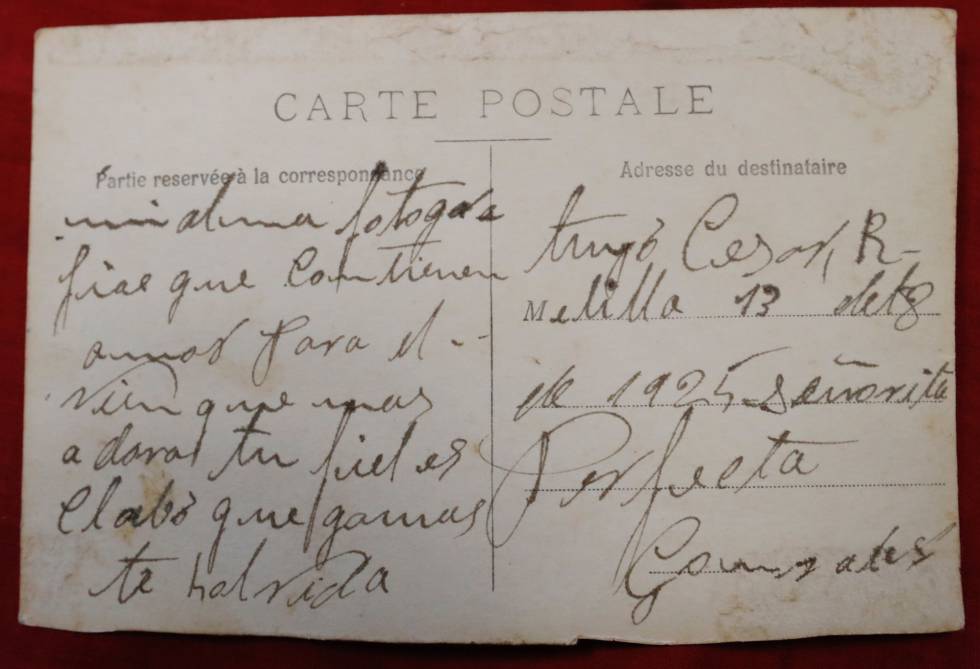 CARTE POSTALE
Partie reservée à la correspondance
mi alma fotogra
fias que Contienen
amor para el
vien que mas
adoras tu fiel es
Clabo que gamas
te holvida
Adresse du destinataire
tuyo Cesar, R-
Melilla 13 del 8
de 1925 señorita
Perfecta
Gonzales